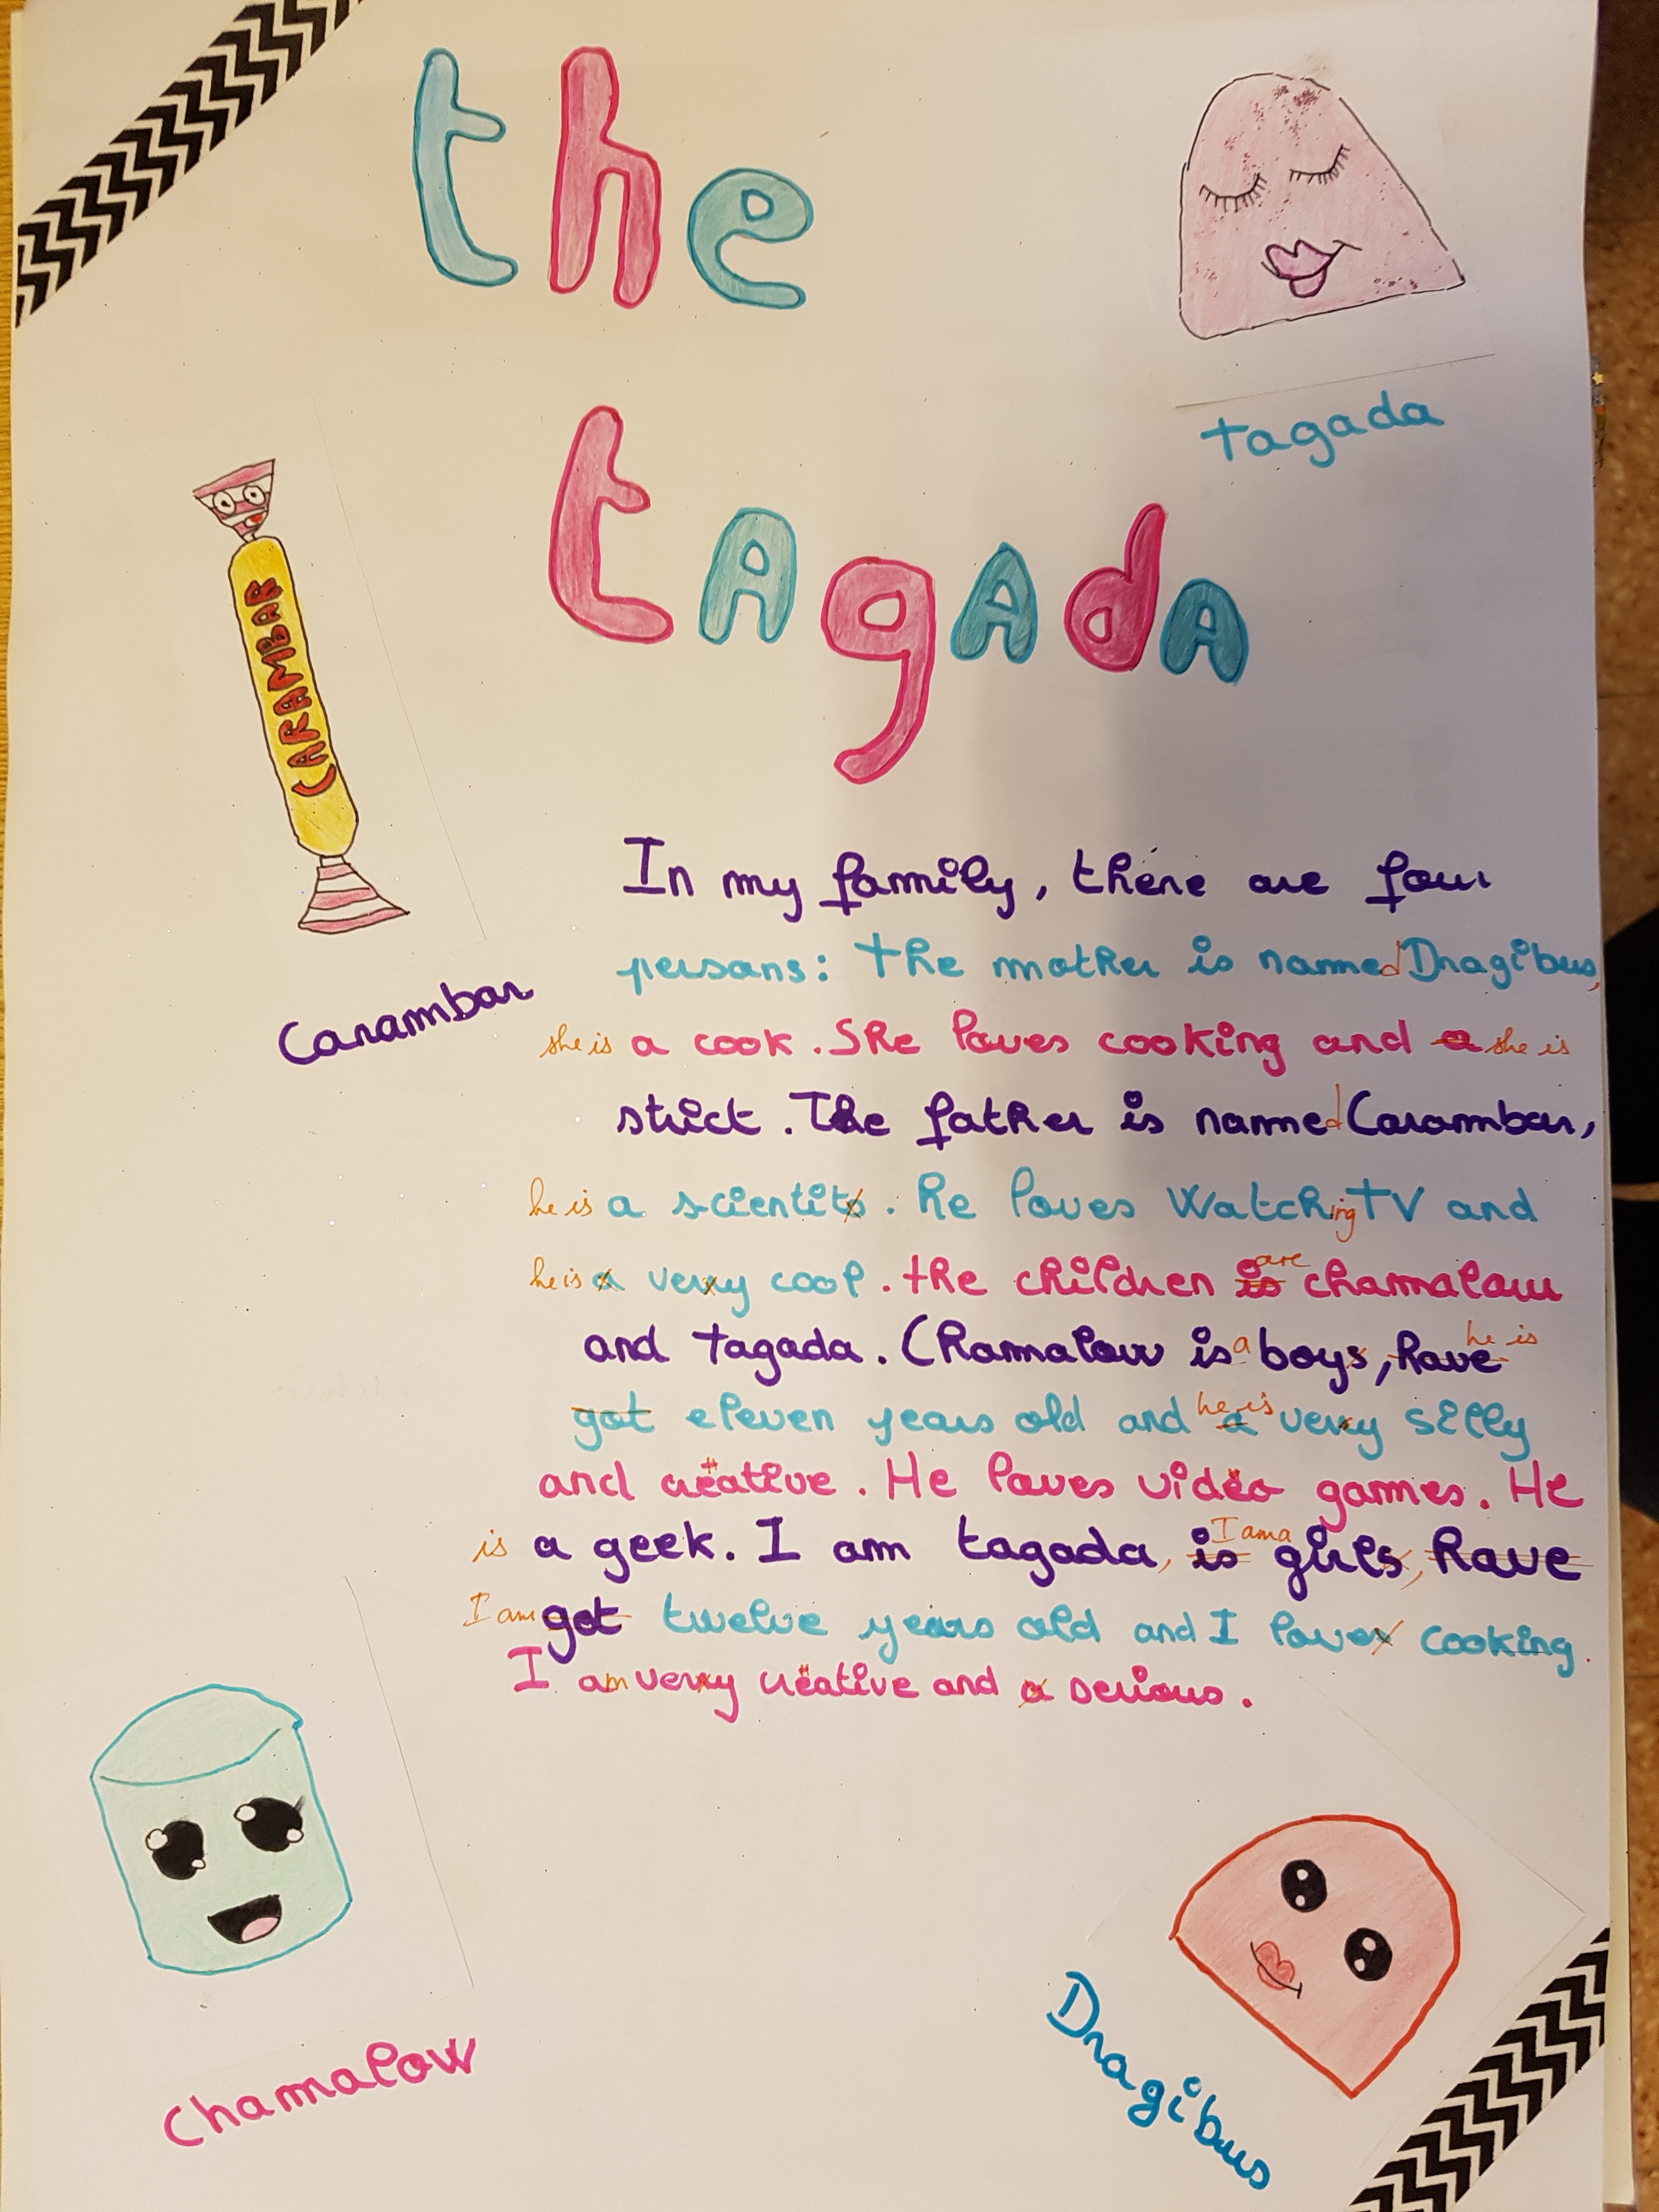 the
tagada
tagada
CARAMBAR
Carambar
In my family, there are four
persons: the mother is named Dragibus,
she is a cook. She loves cooking and a she is
strict. The father is named Carambar,
he is a scientits. he loves Watching TV and
he is a verry cool. the children is are chamalow
and tagada. Chamalow is a boys, have he is
got eleven years old and a he is verry silly
and créative. He loves vidéo games. He
is a geek. I am tagada, is I am a girls, have
I am got twelve years old and I loves cooking.
I am verry créative and a serious.
Chamalow
Dragibus